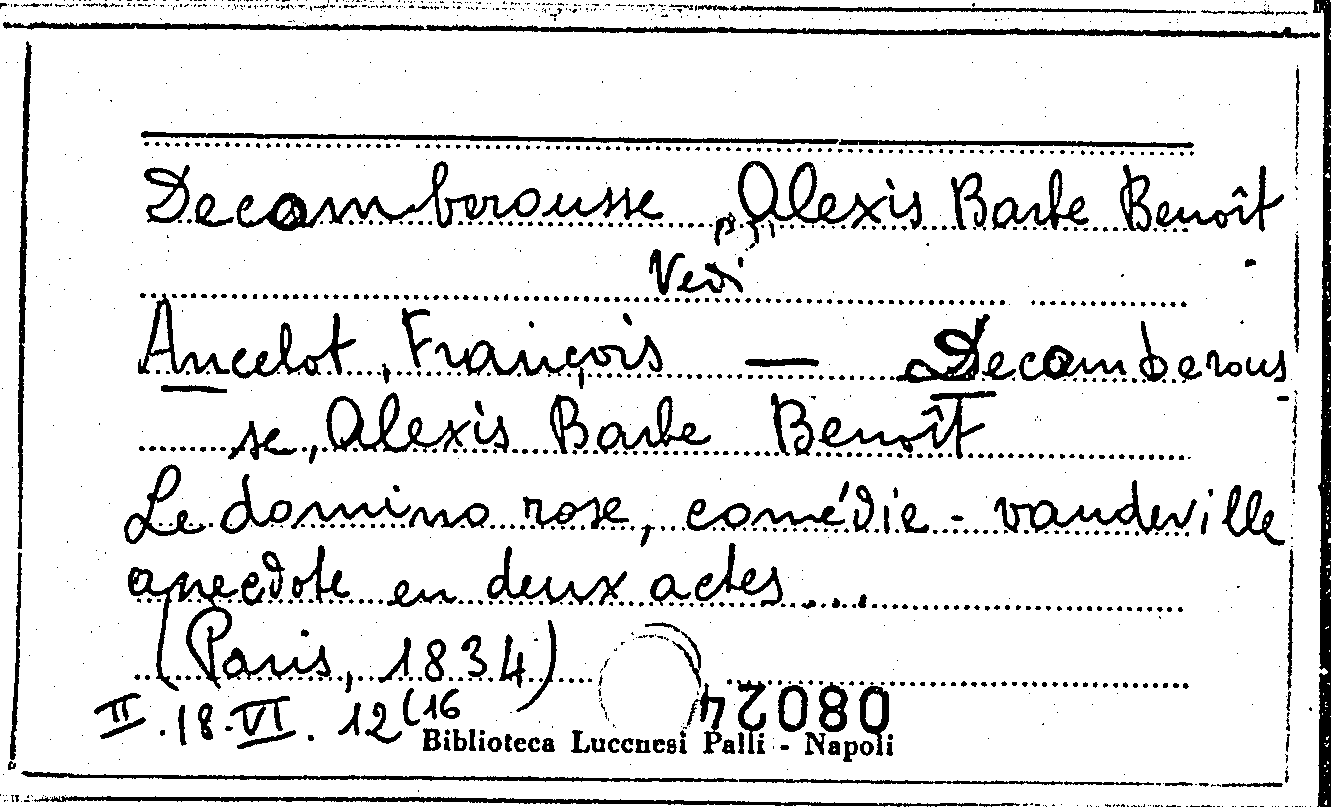 Decomberousse, Alexis Barbe Benoît
Vedi
Ancelot, François — Decomberous
se, Alexis Barbe Benoît
Le domino rose, comédie - vaudeville
anecdote en deux actes...
(Paris, 1834)
II.18.VI.12(16
08024
Biblioteca Lucchesi Palli - Napoli